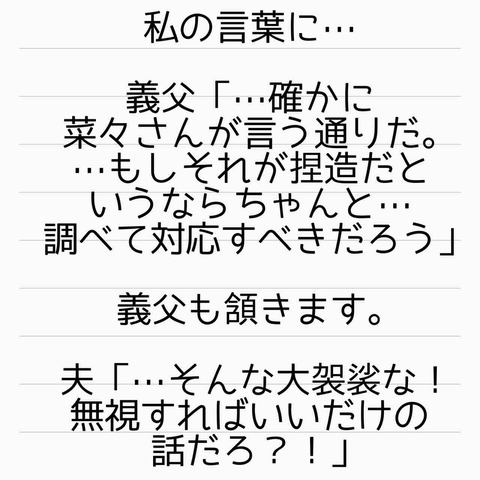 私の言葉に…
義父「…確かに
菜々さんが言う通りだ。
…もしそれが捏造だと
いうならちゃんと…
調べて対応すべきだろう」
義父も頷きます。
夫「…そんな大袈裟な！
無視すればいいだけの
話だろ？！」